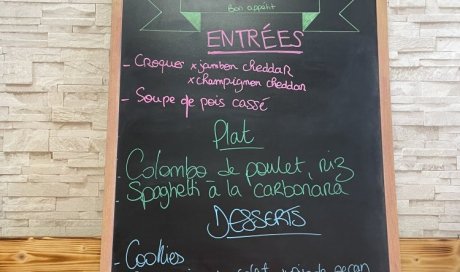 Bon appétit
ENTRÉES
- Croque x jambon cheddar
x champignon cheddar
- Soupe de pois cassé
Plat
- Colombo de poulet, riz
- Spaghetti à la carbonara
DESSERTS
- Cookies